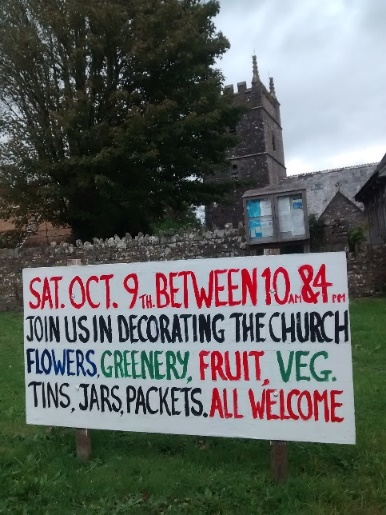 SAT. OCT. 9TH. BETWEEN 10AM & 4PM
JOIN US IN DECORATING THE CHURCH
FLOWERS, GREENERY, FRUIT, VEG.
TINS, JARS, PACKETS. ALL WELCOME